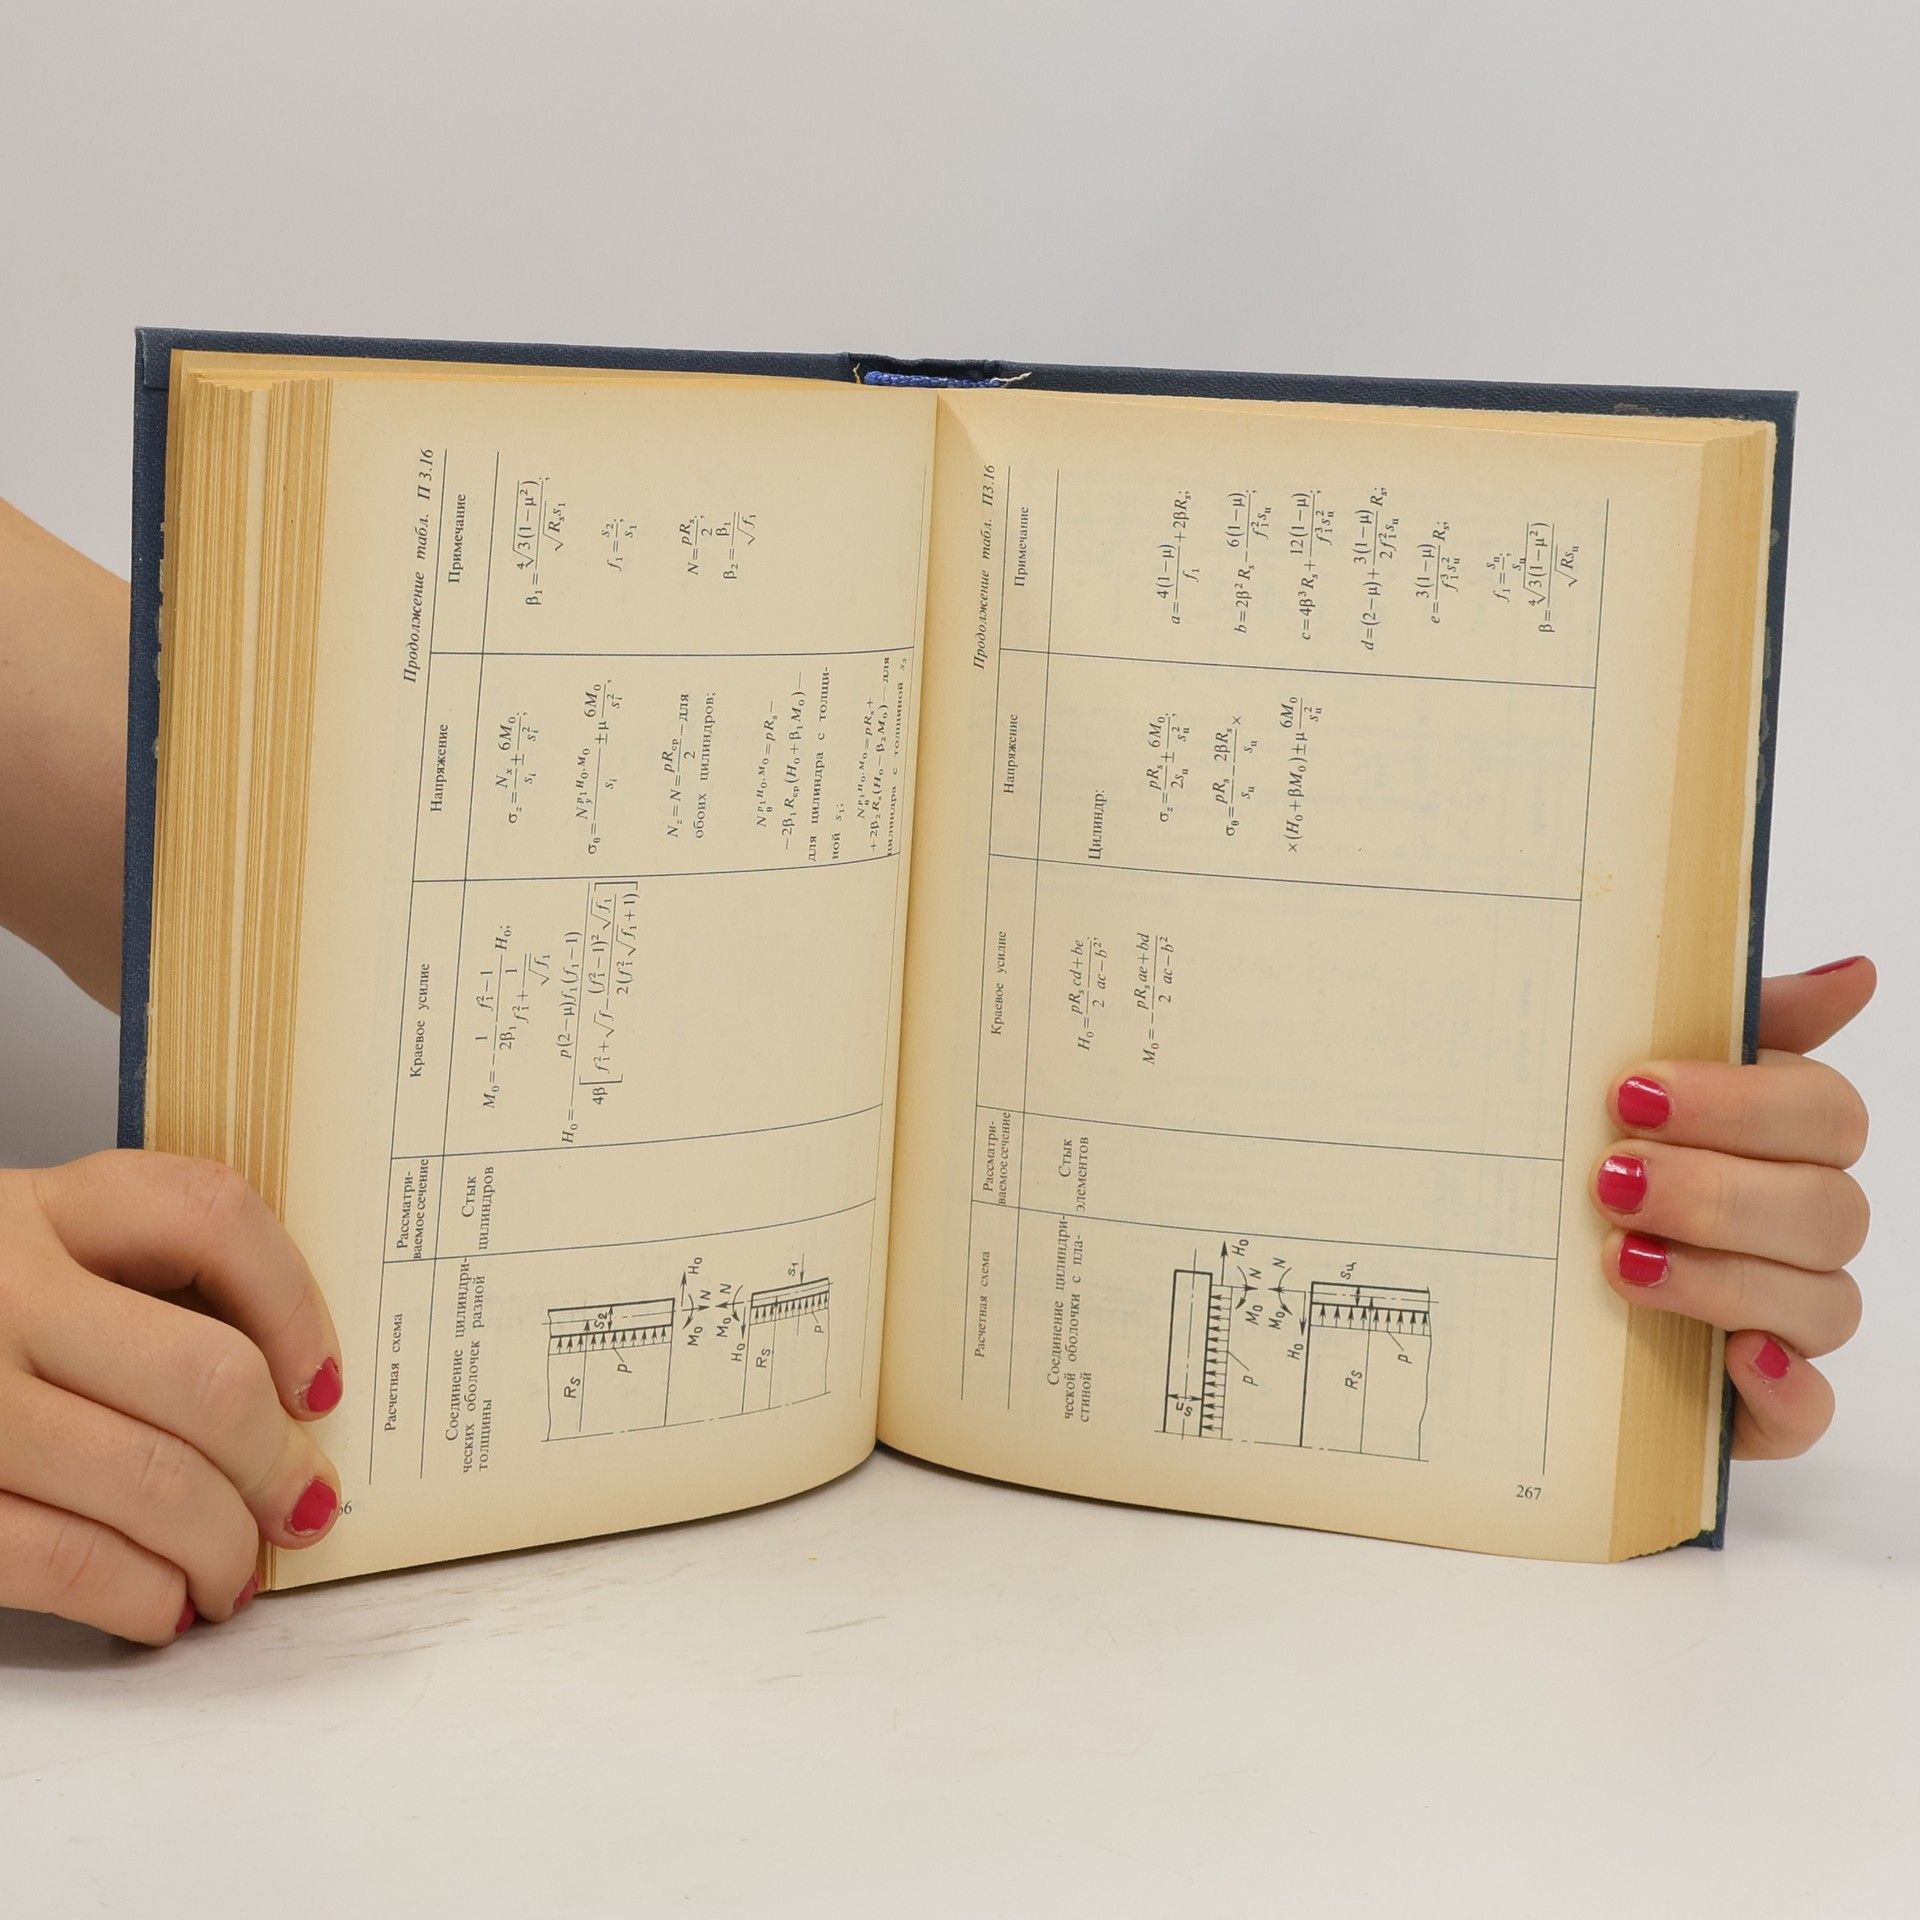 Продолжение табл. П 3.16
Расчетная схема
Рассматри-
ваемое сечение
Краевое усилие
Напряжение
Примечание
Соединение цилиндри-
ческих оболочек разной
толщины
Стык
цилиндров
M₀=−1/(2β₁) (f₁²−1)/(f₁²+1/√f₁) H₀;
H₀=p(2−μ)f₁(f₁−1)/(4β[f₁²+√f−(f₁²−1)²√f₁/(2(f₁²√f₁+1))])
σ_z=N_x/s_i±6M₀/s_i²;
σ_θ=N_y^{p₁H₀,M₀}/s_i±μ 6M₀/s_i²;
N_z=N=pR_ср/2—для
обоих цилиндров;
N_θ^{p₁H₀,M₀}=pR_s−
−2β₁R_ср(H₀+β₁M₀)—
для цилиндра с толщи-
ной s₁;
N_θ^{p₁H₀,M₀}=pR_s+
+2β₂R_s(H₀−β₂M₀)—для
цилиндра с толщиной s₂
β₁=⁴√3(1−μ²)/√R_s s₁;
f₁=s₂/s₁;
N=pR_s/2;
β₂=β₁/√f₁
s₂
R_s
p
M₀
N
H₀
M₀
N
H₀
R_s
s₁
p
66
Продолжение табл. П3.16
Расчетная схема
Рассматри-
ваемое сечение
Краевое усилие
Напряжение
Примечание
Соединение цилиндри-
ческой оболочки с пла-
стиной
Стык
элементов
H₀=pR_s/2 (cd+be)/(ac−b²);
M₀=−pR_s/2 (ae+bd)/(ac−b²)
Цилиндр:
σ_z=pR_s/2s_ц±6M₀/s_ц²;
σ_θ=pR_s/s_ц−2βR_s/s_ц×
×(H₀+βM₀)±μ 6M₀/s_ц²
a=4(1−μ)/f₁+2βR_s;
b=2β²R_s−6(1−μ)/f₁²s_ц;
c=4β³R_s+12(1−μ)/f₁³s_ц²;
d=(2−μ)+3(1−μ)/2f₁²s_ц R_s;
e=3(1−μ)/f₁³s_ц² R_s;
f₁=s_п/s_ц;
β=⁴√3(1−μ²)/√Rs_ц
s_п
p
M₀
N
H₀
M₀
N
H₀
R_s
s_ц
p
267